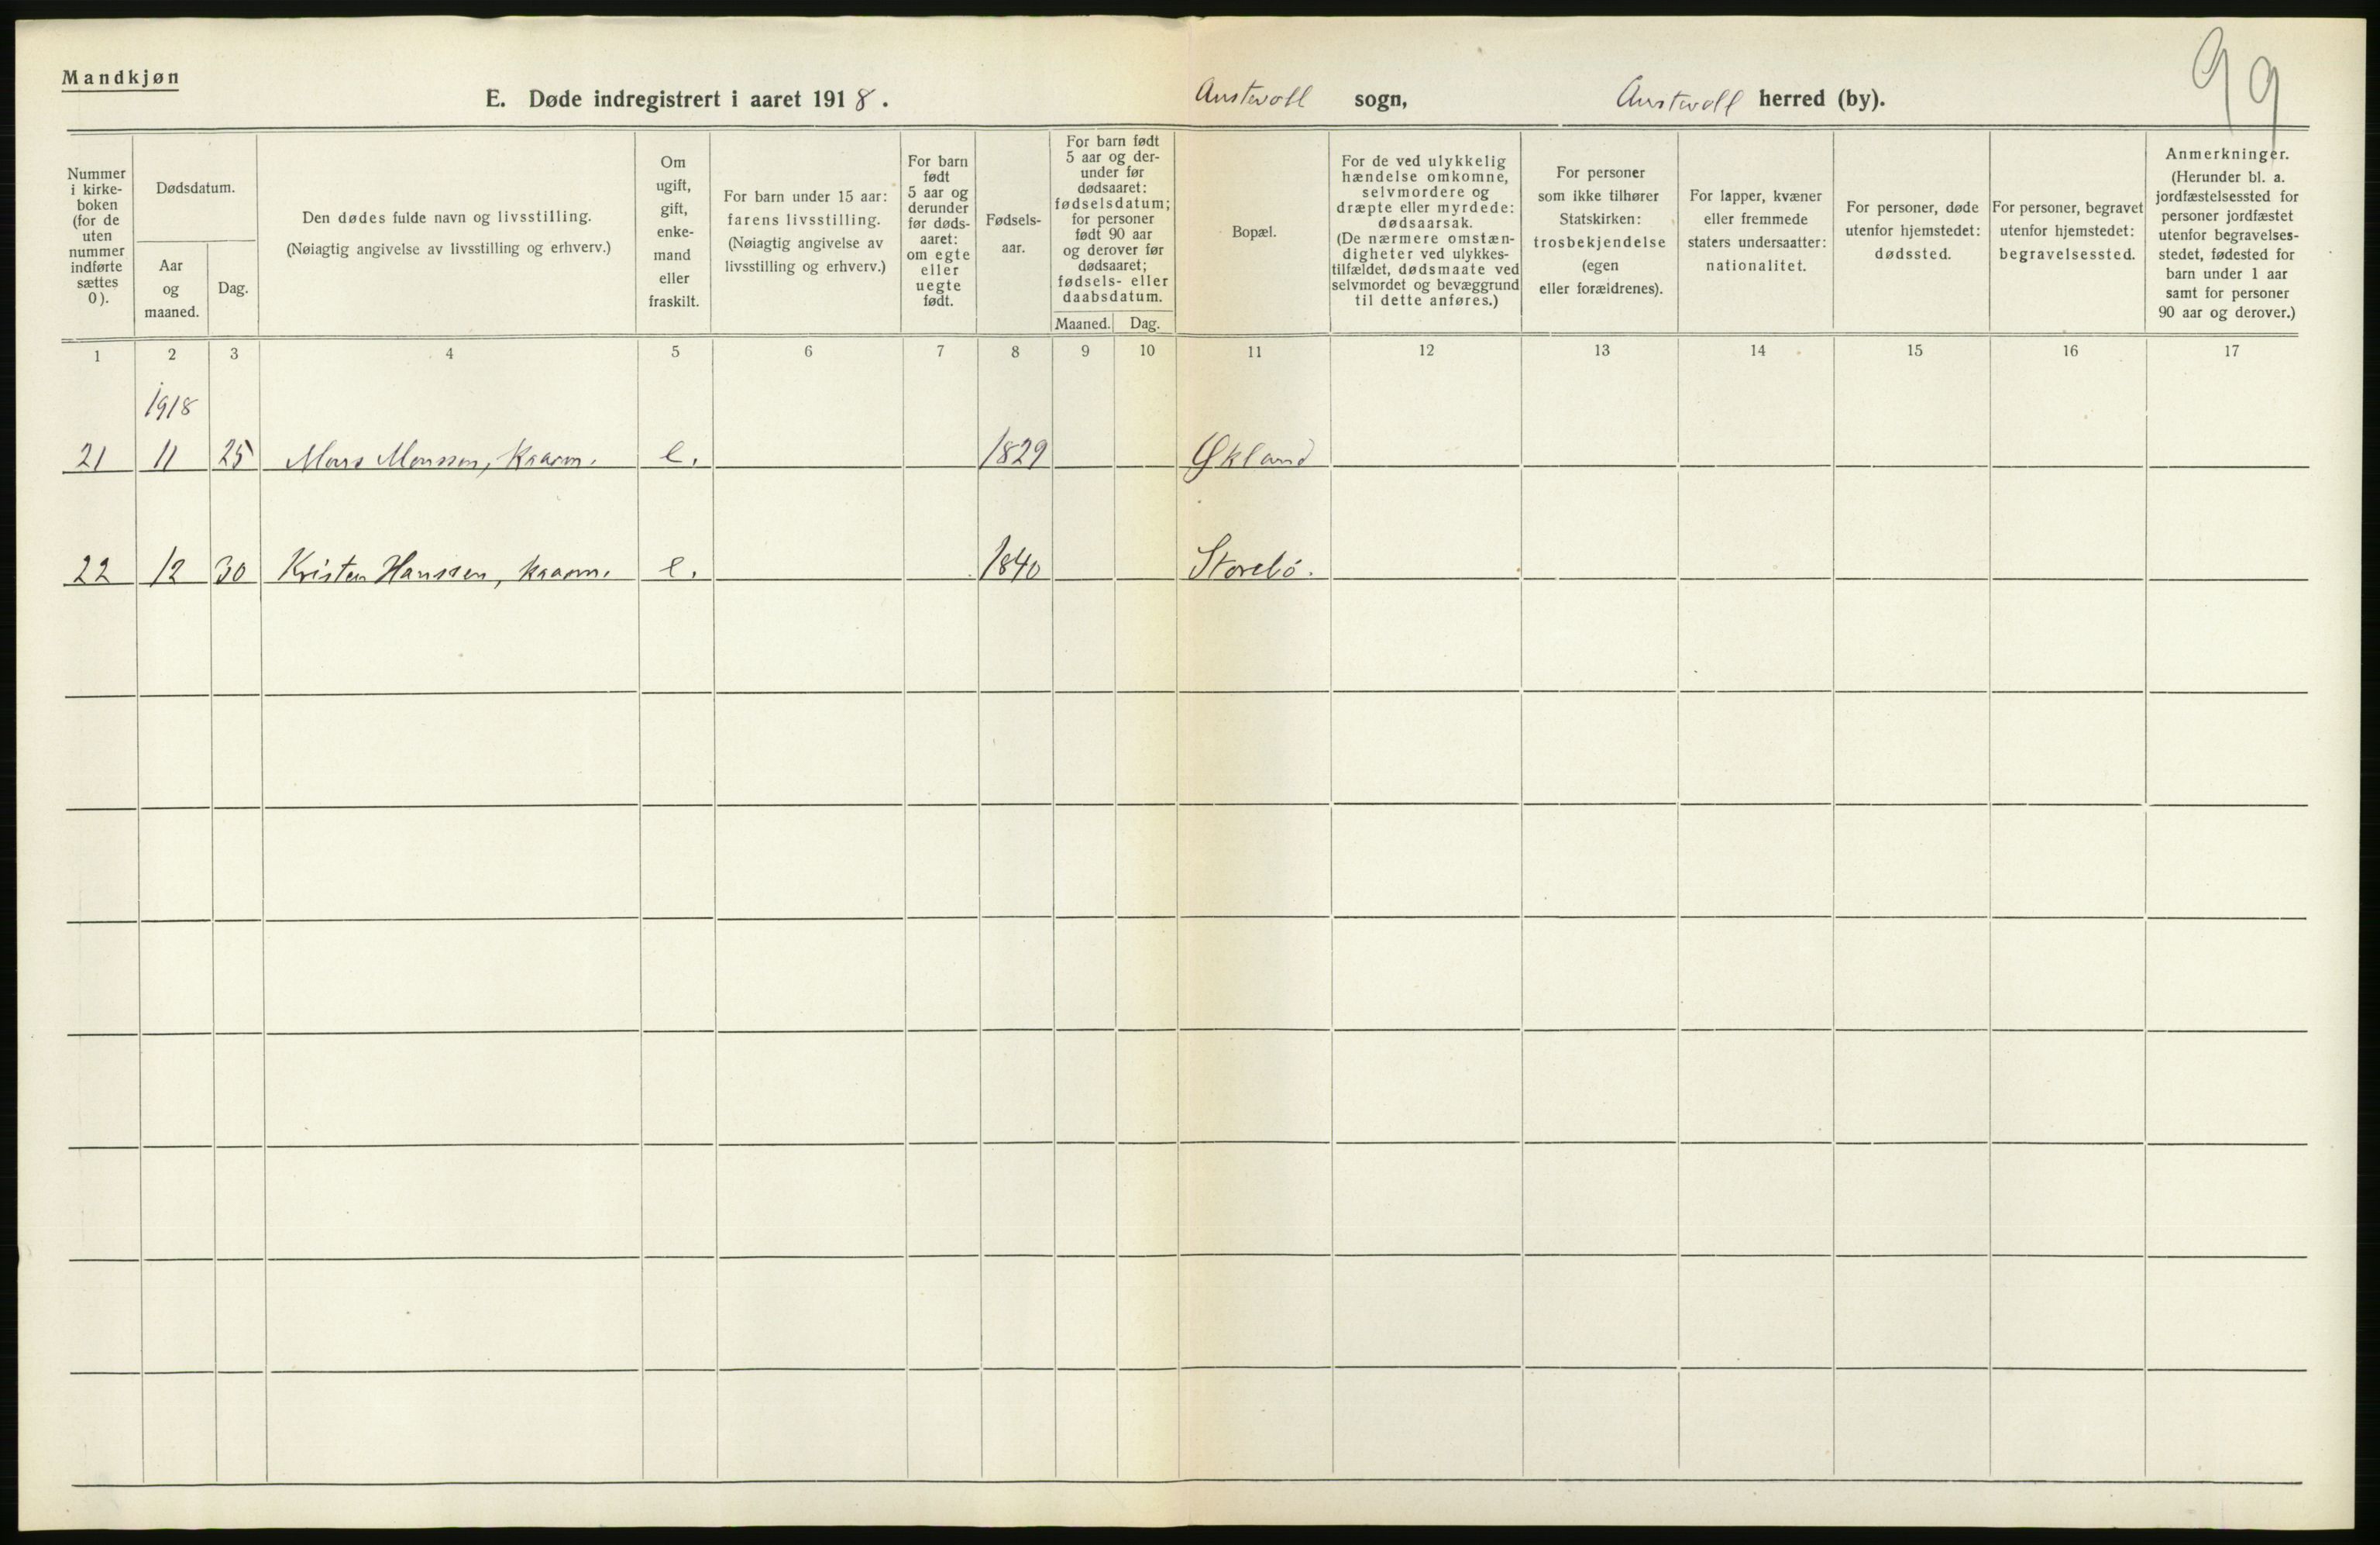 99
Mandkjøn
E. Døde indregistrert i aaret 1918. Austevoll sogn, Austevoll herred (by).
Nummer i kirke-boken (for de uten nummer indførte sættes 0).
Dødsdatum.
Aar og maaned.
Dag.
Den dødes fulde navn og livsstilling.
(Nøiagtig angivelse av livsstilling og erhverv.)
Om ugift, gift, enke-mand eller fraskilt.
For barn under 15 aar: farens livsstilling.
(Nøiagtig angivelse av livsstilling og erhverv.)
For barn født 5 aar og derunder før døds-aaret: om egte eller uegte født.
Fødsels-aar.
For barn født 5 aar og der-under før dødsaaret: fødselsdatum; for personer født 90 aar og derover før dødsaaret; fødsels- eller daabsdatum.
Maaned. Dag.
Bopæl.
For de ved ulykkelig hændelse omkomne, selvmordere og dræpte eller myrdede: dødsaarsak.
(De nærmere omstæn-digheter ved ulykkes-tilfældet, dødsmaate ved selvmordet og bevæggrund til dette anføres.)
For personer som ikke tilhører Statskirken: trosbekjendelse (egen eller forældrenes).
For lapper, kvæner eller fremmede staters undersaatter: nationalitet.
For personer, døde utenfor hjemstedet: dødssted.
For personer, begravet utenfor hjemstedet: begravelsessted.
Anmerkninger.
(Herunder bl. a. jordfæstelsessted for personer jordfæstet utenfor begravelses-stedet, fødested for barn under 1 aar samt for personer 90 aar og derover.)
1 2 3 4 5 6 7 8 9 10 11 12 13 14 15 16 17
1918
21 11 25 Mons Monssen, kaarm. e. 1829 Økland
22 12 30 Kristen Hanssen, kaarm. e. 1840 Storebö.